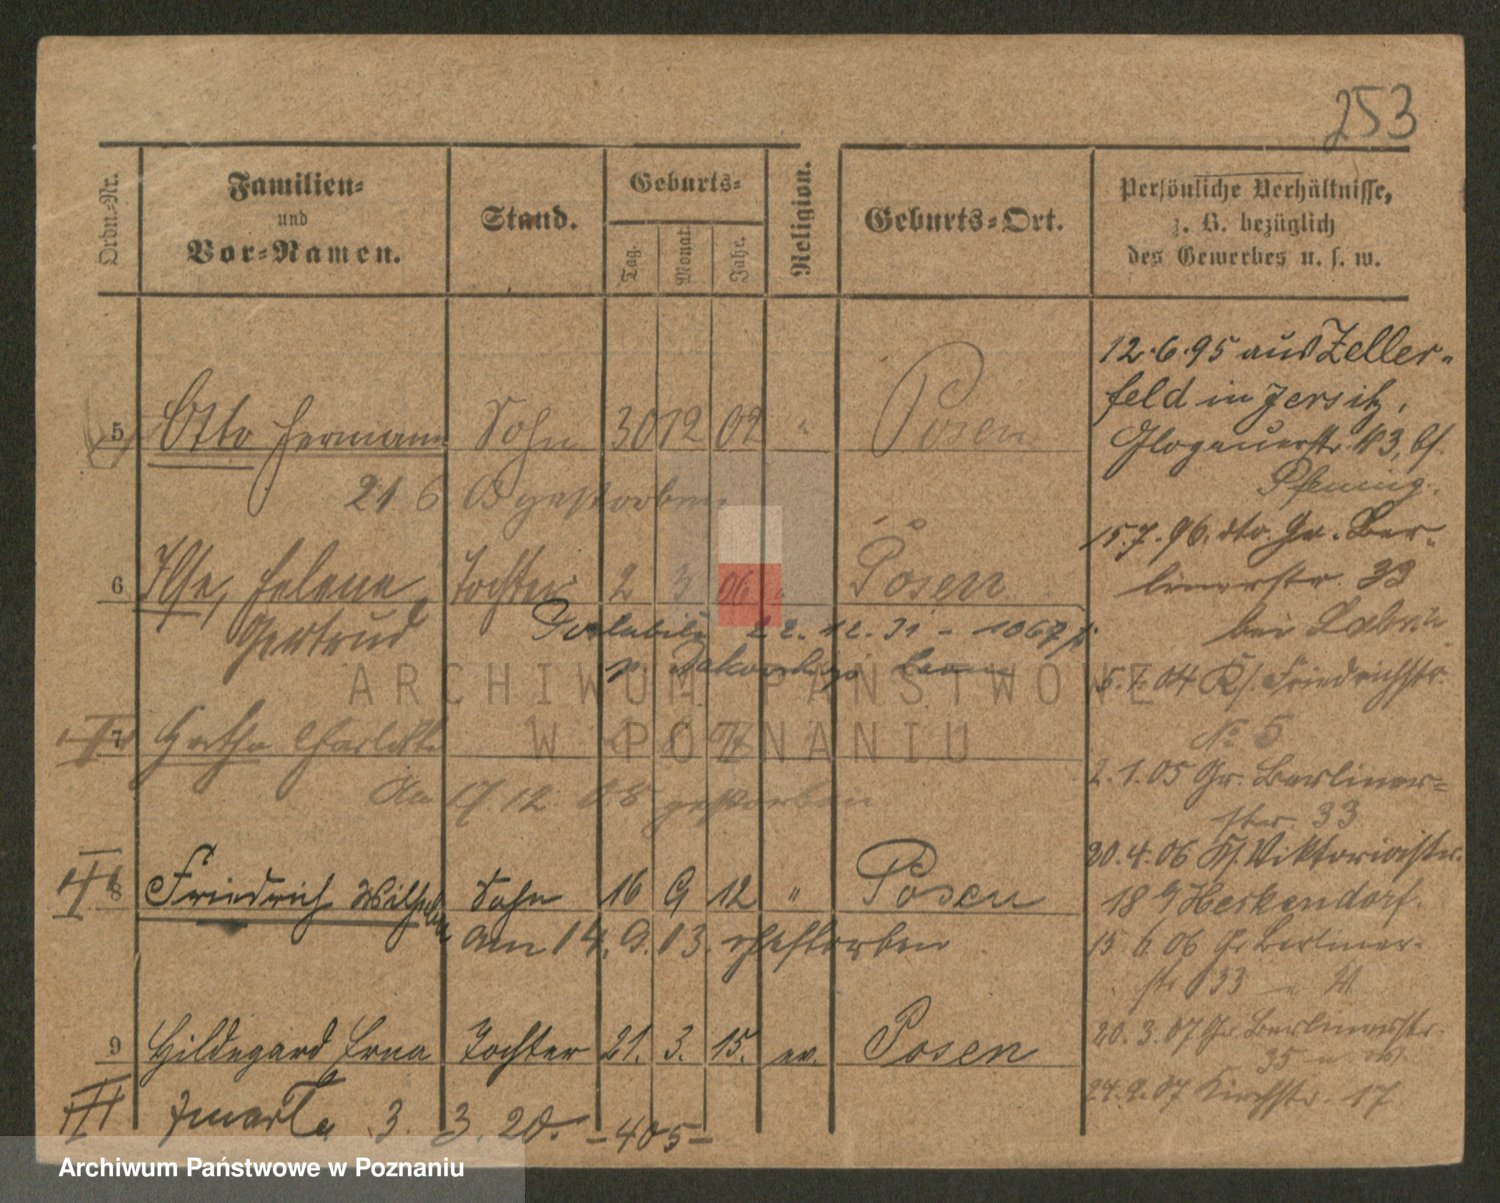 253
Ordn.-Nr.
Familien-
und
Vor-Namen.
Stand.
Geburts-
Tag.
Monat.
Jahr.
Religion.
Geburts-Ort.
Persönliche Verhältnisse,
z. B. bezüglich
des Gewerbes u. s. w.
5 Otto Hermann Sohn 30 12 02 " Posen
21 6 gestorben
6 Ilse, Helene Tochter 2 3 06 " Posen
Gertrud
22.12.31 - 1067
7 Hertha Charlotte
Am 17 12 08 gestorben
8 Friedrich Wilhelm Sohn 16 9 12 " Posen
am 14. 9. 13. gestorben
9 Hildegard Erna Tochter 21. 3. 15. ev. Posen
III zmarła 3. 3. 20. - 405 -
12.6.95 aus Zeller-
feld in Jersitz,
Glogauerstr.
Pfennig.
15.7.96. dto. Gr. Ber-
linerstr. 33
bei
5.7.04 Kl. Friedrichstr.
No 5
2.1.05 Gr. Berliner-
str. 33
20.4.06 Kl. Viktoriastr.
18 Herkendorf.
15 6 06 Gr Berliner-
str 33
20.3.07 Gr. Berlinerstr.
35
24.9.07 Kirchstr. 17.
ARCHIWUM PAŃSTWOWE
W POZNANIU
Archiwum Państwowe w Poznaniu